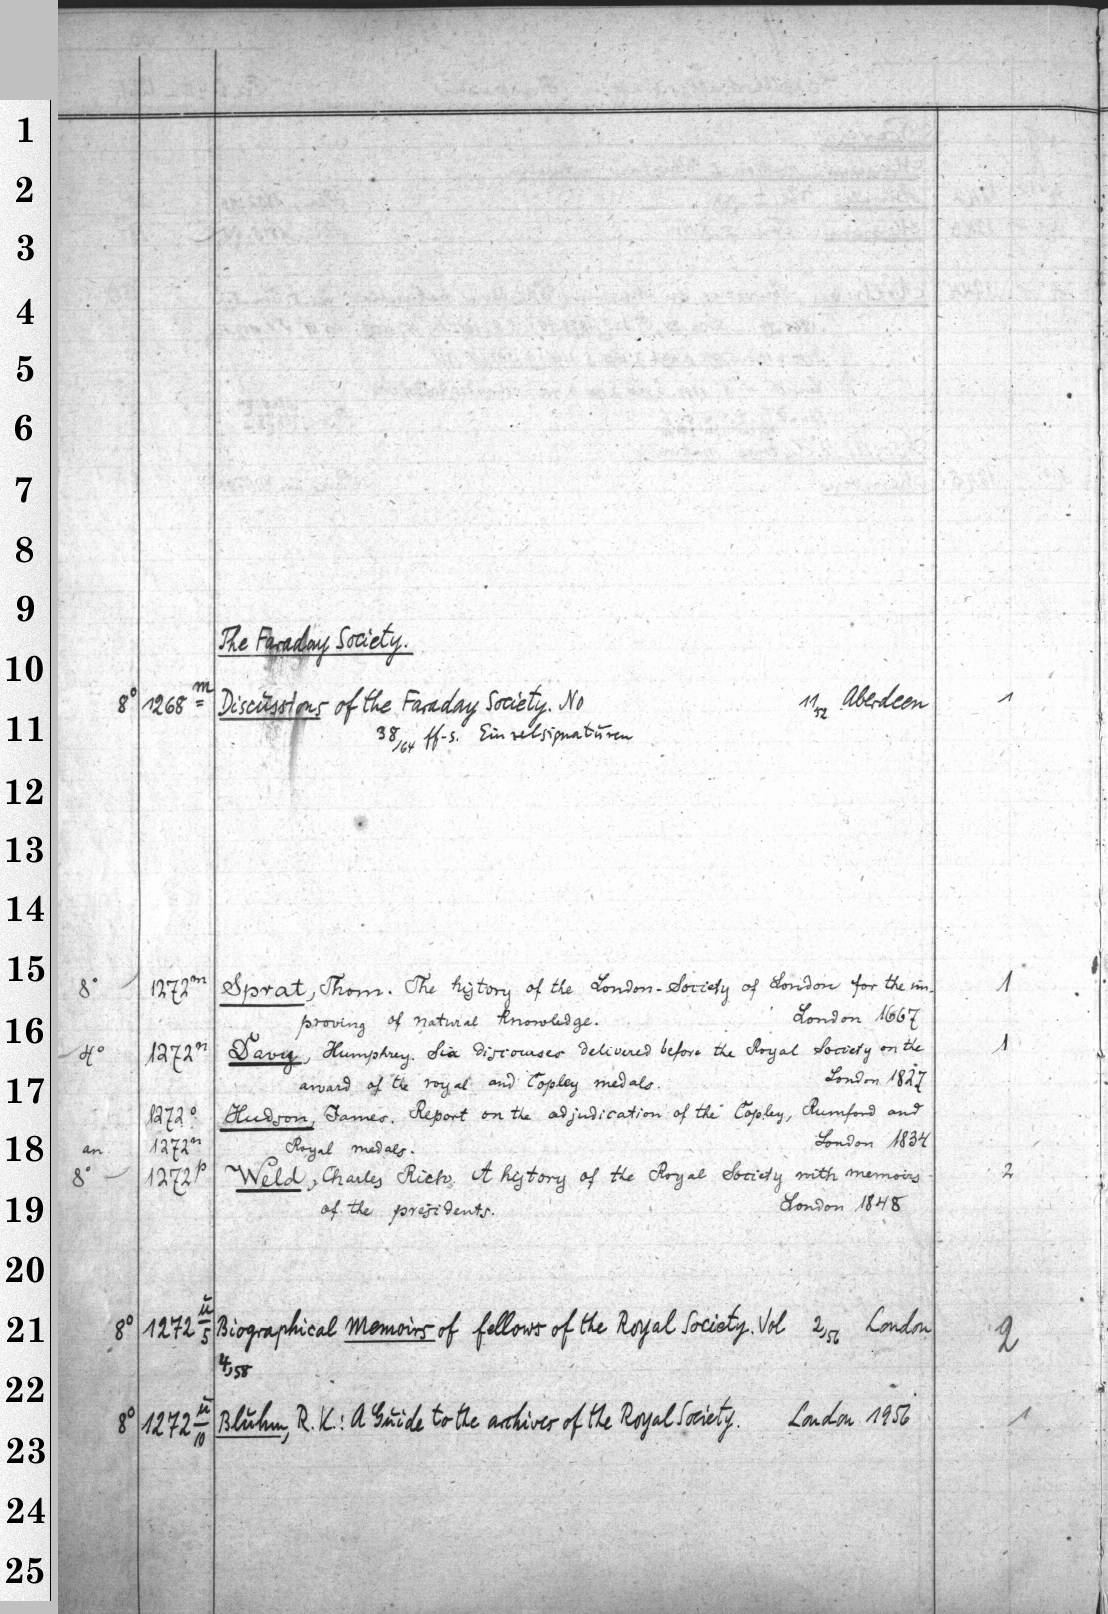 The Faraday Society.
8° 1268 m Discussions of the Faraday Society. No 11,52 Aberdeen 1
38/64 ff. s. Einzelsignaturen
8° 1272 m Sprat, Thom. The history of the London-Society of London for the im- 1
proving of natural knowledge. London 1667
4° 1272 n Davy, Humphrey. Six discourses delivered before the Royal Society on the 1
award of the royal and Copley medals. London 1827
1272 o Hudson, James. Report on the adjudication of the Copley, Rumford and
an 1272 n Royal medals. London 1834
8° 1272 p Weld, Charles Rich. A history of the Royal Society with memoirs 2
of the presidents. London 1848
8° 1272 u/5 Biographical Memoirs of fellows of the Royal Society. Vol 2,56 London 2
4,58
8° 1272 u/10 Bluhm, R. K.: A Guide to the archives of the Royal Society. London 1956 1
1
2
3
4
5
6
7
8
9
10
11
12
13
14
15
16
17
18
19
20
21
22
23
24
25